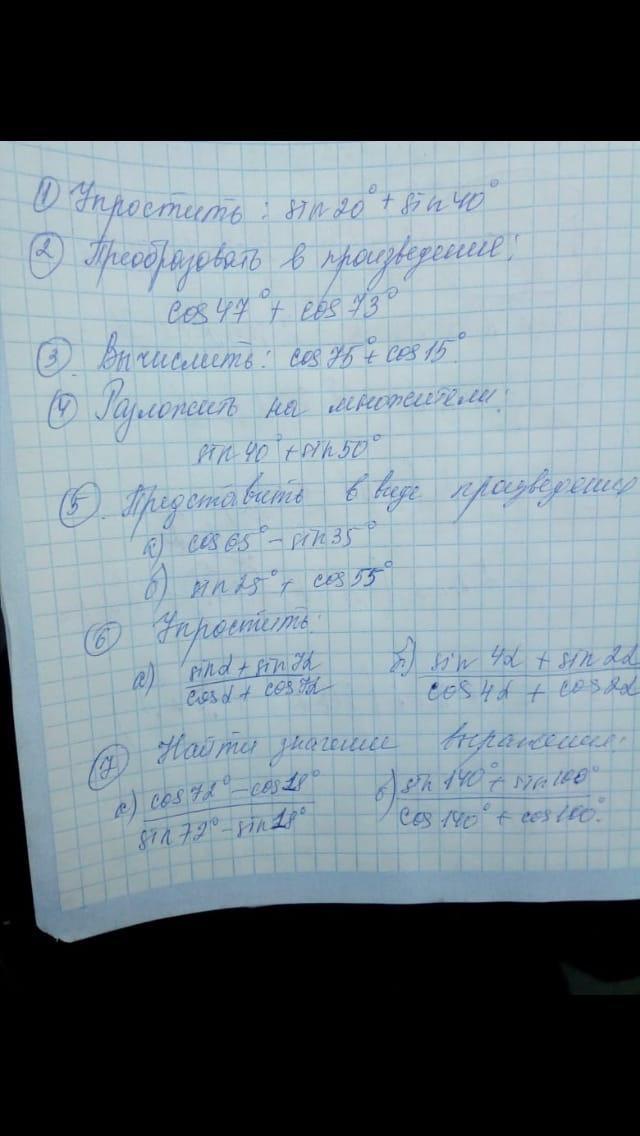 ① Упростить: sin 20° + sin 40°
② Преобразовать в произведение:
cos 47° + cos 73°
③ Вычислить: cos 75° + cos 15°.
④ Разложить на множители:
sin 40° + sin 50°
⑤ Представить в виде произведения
а) cos 65° - sin 35°
б) sin 25° + cos 55°
⑥ Упростить:
а) (sin α + sin 7α) / (cos α + cos 7α) б) (sin 4α + sin 2α) / (cos 4α + cos 2α)
⑦ Найти значения выражения:
а) (cos 72° - cos 18°) / (sin 72° - sin 18°) б) (sin 140° + sin 100°) / (cos 140° + cos 100°.)